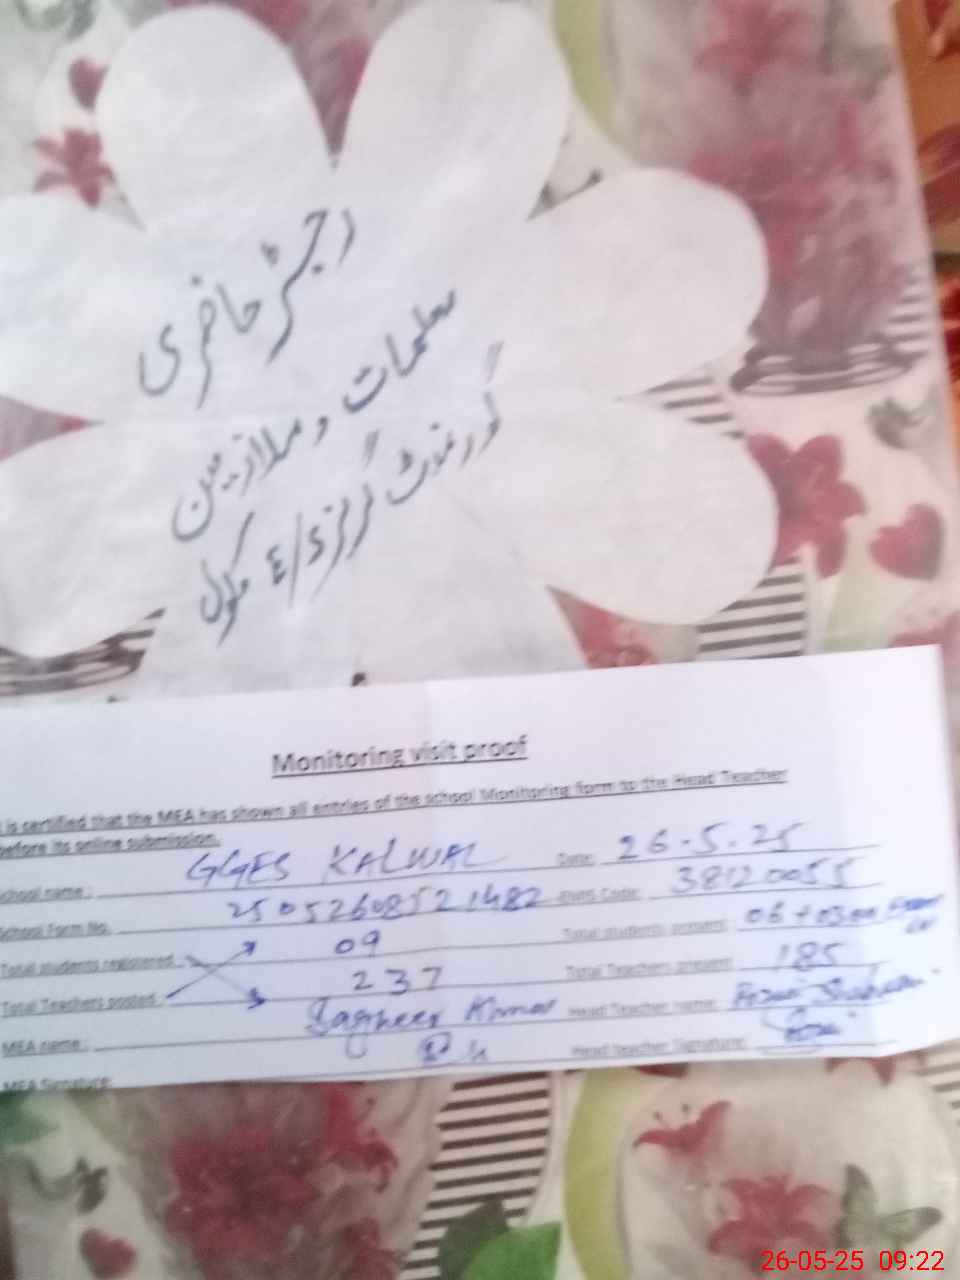 رجسٹر حاضری
معلمات و ملازمین
گورنمنٹ گرلز E/S سکول
Monitoring visit proof
is certified that the MEA has shown all entries of the school Monitoring form to the Head Teacher
before its online submission.
School name : GGES KALWAL Date: 26-5-25
School Form No. 2505260852 1482 EMIS Code: 38120055
Total students registered 09 Total students present 06 + 03 on
Total Teachers posted : 237 Total Teachers present 185
MEA name : Sagheer Head Teacher name:
MEA Signature: Head teacher Signature:
26-05-25 09:22